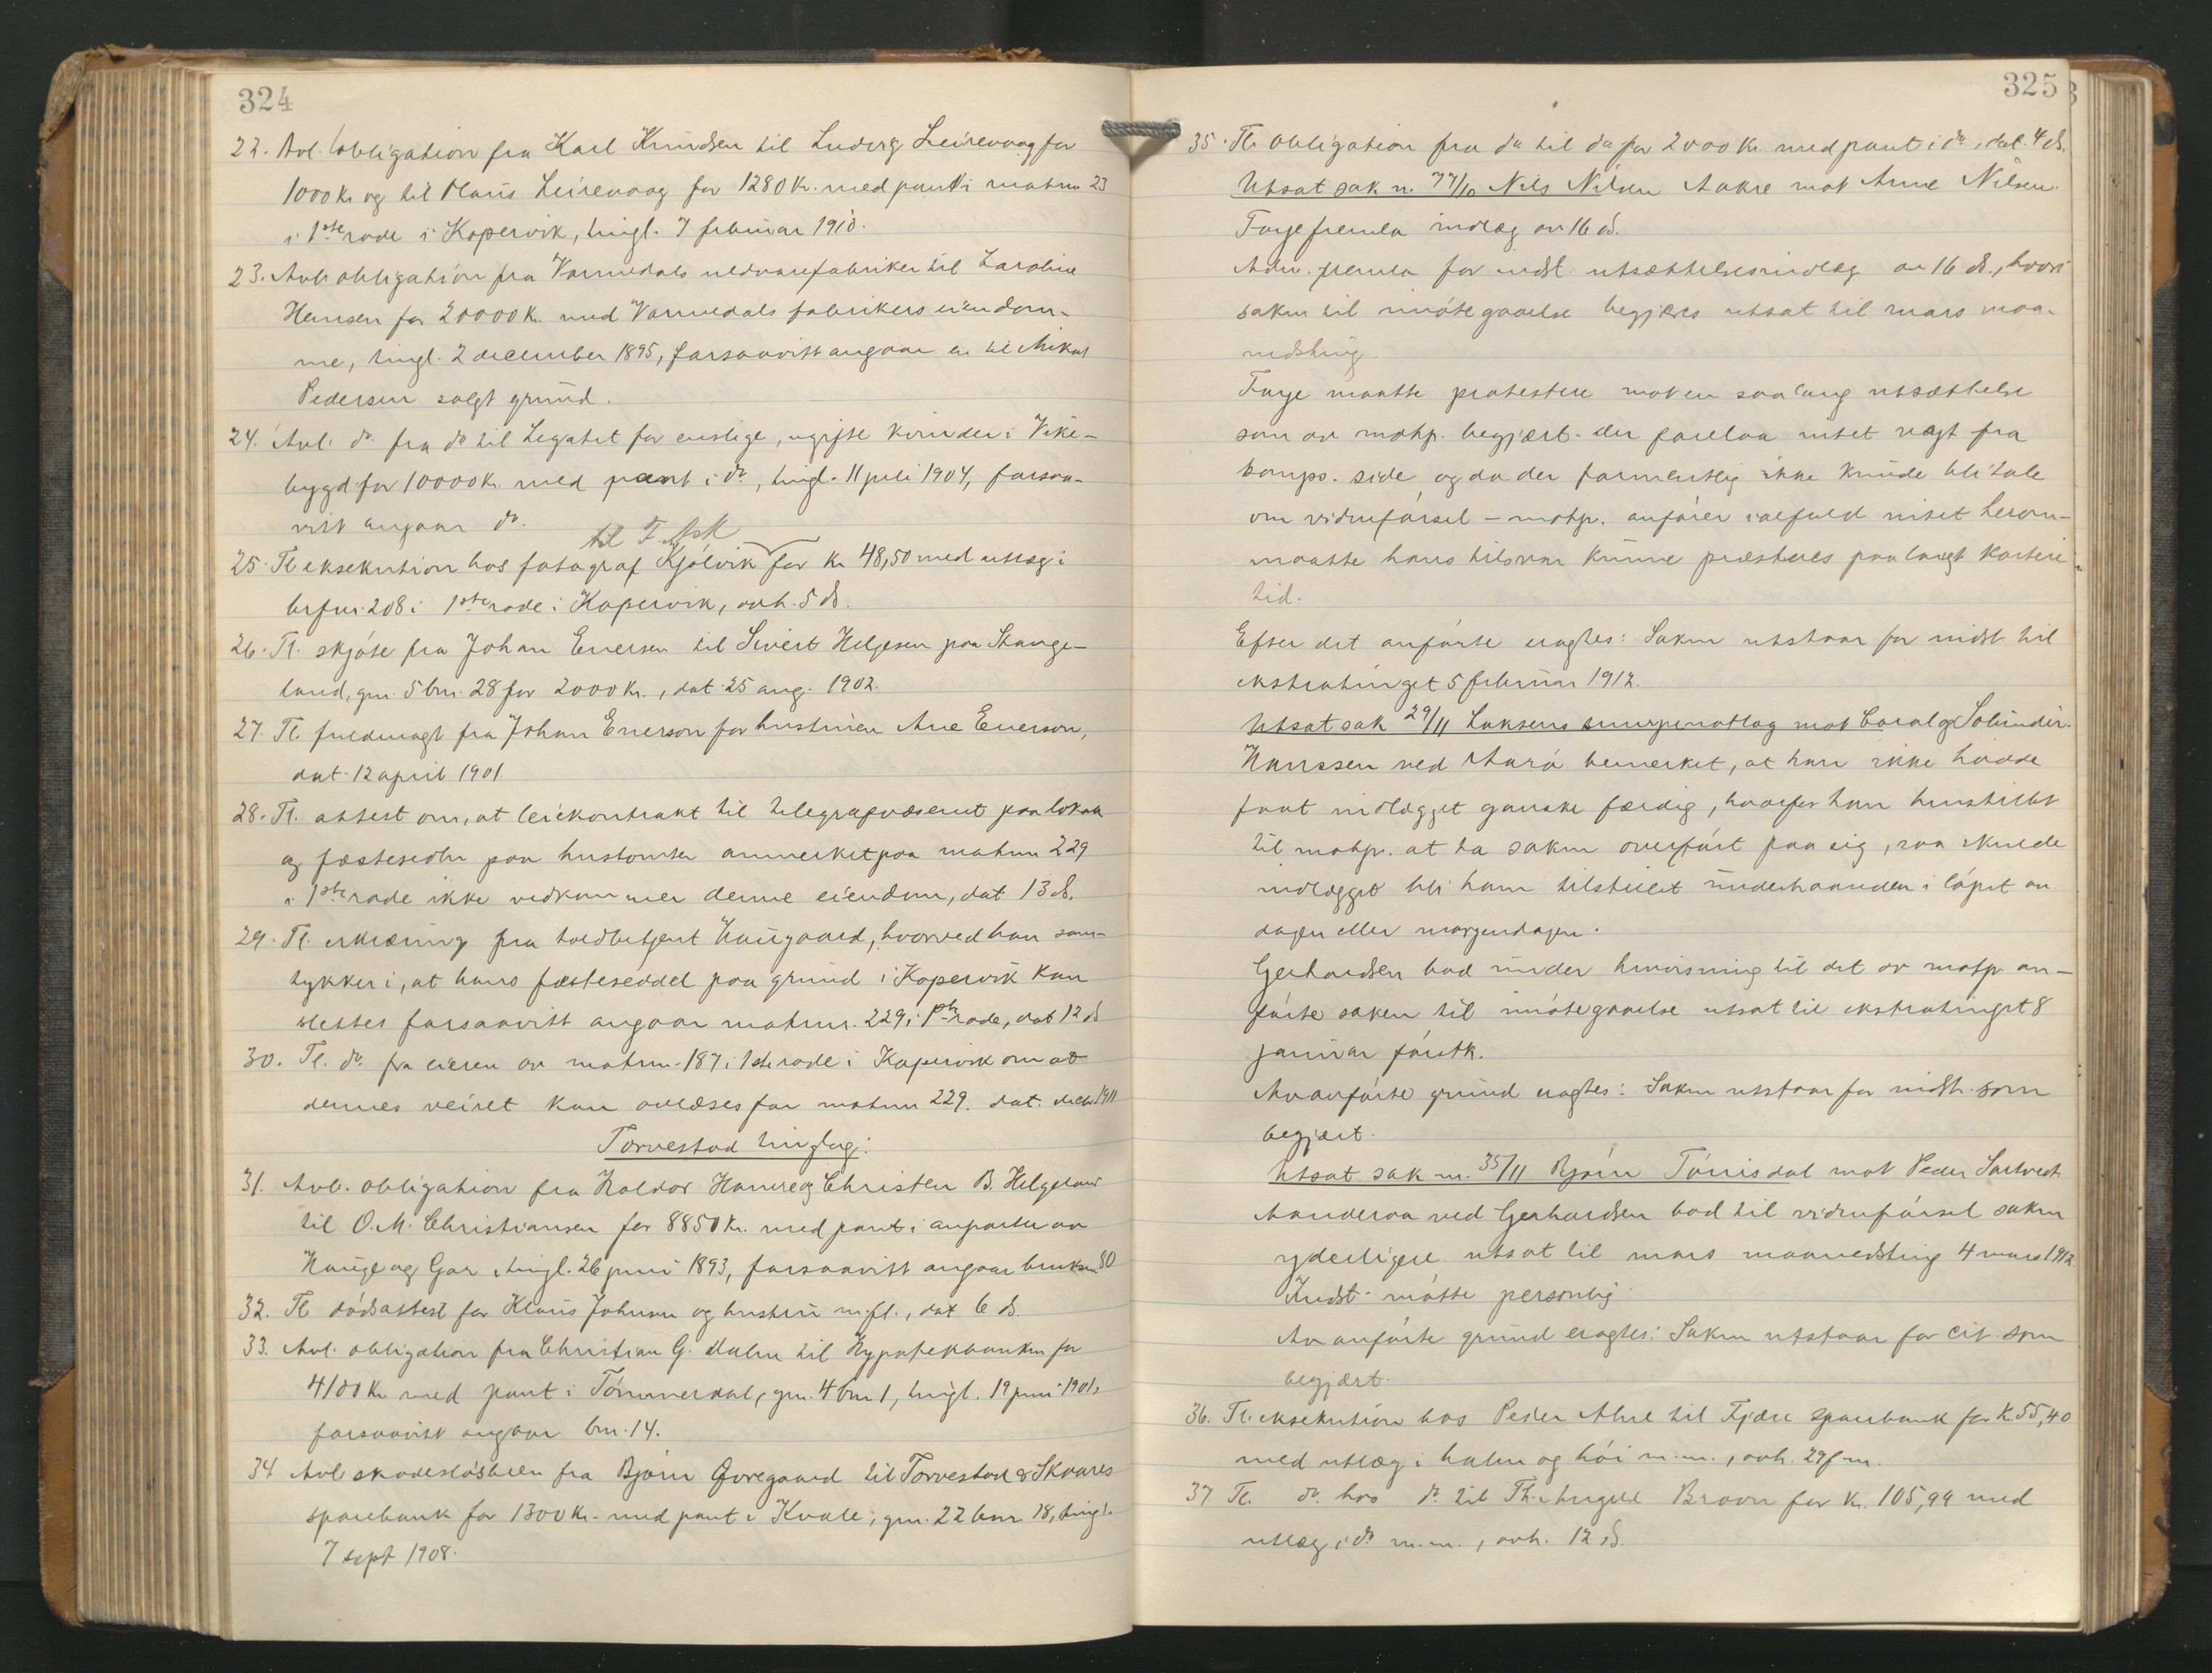 324
22. Avl. obligation fra Karl Knudsen til Ludvig Leirevaag for
1000 kr og til Maris Leirevaag for 1280 kr. med pant i matrnr 23
i 1ste rode i Kopervik, tingl. 7 februar 1910.
23. Avl. obligation fra Vormedals uldvarefabriker til Laroline
Hansen for 20000 kr. med Vormedals fabrikers eiendom-
me, tingl. 2 december 1895, forsaavitt angaar en til Mikal
Pedersen solgt grund.
24. Avl. do. fra do til Legatet for enslige, ugifte kvinder i Vike-
bygd for 10000 kr. med pant i do, tingl. 11 juli 1904, forsaa-
vitt angaar do.
til T. Ask
25. Tl eksekution hos fotograf Kjölvik for kr 48,50 med utlæg i
brfnr. 208 i 1ste rode i Kopervik, avh. 5 ds.
26. Tl. skjöte fra Johan Enersen til Sivert Helgesen paa Stange-
land, gnr. 5 bnr. 28 for 2000 kr., dat. 25 aug. 1902.
27. Tl. fuldmagt fra Johan Enerson for hustruen Ane Enerson,
dat. 12 april 1901.
28. Tl. attest om, at leiekontrakt til telegrafvæsenet paa lokale
og fæstesedler paa hustomter anmerket paa matrnr 229
i 1ste rode ikke vedkommer denne eiendom, dat 13 ds.
29. Tl. erklæring fra toldbetjent Haugaard, hvorved han sam-
tykker i, at hans fæsteseddel paa grund i Kopervik kan
slettes forsaavitt angaar matrnr. 229 i 1ste rode, dat 12 ds
30. Tl. do. fra eieren av matrnr. 187 i 1ste rode i Kopervik om at
dennes veiret kan avlæses for matrnr 229. dat. decbr 1911
Torvestad tinglag:
31. Avl. obligation fra Haldor Hauge og Christen B. Helgeland
til O. M. Christiansen for 8850 kr. med pant i anparter av
Hauge og Gar, tingl. 26 juni 1893, forsaavitt angaar bruksnr 80
32. Tl dödsattest for Klaus Johnsen og hustru m.fl., dat 6 ds.
33. Avl. obligation fra Christian G. Malm til Hypotekbanken for
4100 kr med pant i Tömmerdal, gnr. 4 bnr 1, tingl. 19 juni 1901,
forsaavitt angaar bnr. 14.
34 Avl. skadeslösbrev fra Bjørn Øvregaard til Torvestad & Skaares
sparebank for 1300 kr. med pant i Kvale, gnr. 22 bnr 18, tingl.
7 sept 1908.
325
35. Tl. obligation fra do til do for 2000 kr. med pant i do, dat. 4 ds.
Utsat sak nr. 77/10 Nils Nilsen Aakre mot Anne Nilsen.
Faye fremla indlæg av 16 ds.
Adv. fremla for indst. utsættelsesindlæg av 16 ds., hvori
saken til imötegaaelse begjæres utsat til mars maa-
nedsting
Faye maatte protestere mot en saa lang utsættelse
som av motp. begjært. der forelaa intet nagt fra
komps. side, og da der formentlig ikke kunde bli tale
om vidneförsel – motp. anförer ialfald intet herom –
maatte hans tilsvar kunne præsteres paa langt kortere
tid.
Efter det anförte eragtes: Saken utstaar for indst til
ekstratinget 5 februar 1912.
Utsat sak 29/11 Laksens snurpenotlag mot Carl og Salinder.
Hanssen ved Aarö bemerket, at han ikke havde
faat indlægget ganske færdig, hvorfor han henstillet
til motp. at ta saken overfört paa sig, saa skulde
indlægget bli ham tilstillet underhaanden i löpet av
dagen eller morgendagen.
Gerhardsen bad under henvisning til det av motp. an-
förte saken til imötegaaelse utsat til ekstratinget 8
januar förstk.
Av anförte grund eragtes: Saken utstaar for indst. som
begjært.
Utsat sak nr. 35/11 Bjørn Tönisdal mot Peder Sartveit
Aanderaa ved Gerhardsen bad til vidneförsel saken
yderligere utsat til mars maanedsting 4 mars 1912
Indst. mötte personlig.
Av anförte grund eragtes: Saken utstaar for cit. som
begjært.
36. Tl. eksekution hos Peder Alne til Fjære sparebank for kr. 55,40
med utlæg i halm og höi m.m., avh. 29 f.m.
37 Tl. do. hos do til Th. Angell Broon for kr. 105,99 med
utlæg i do m.m., avh. 12 ds.